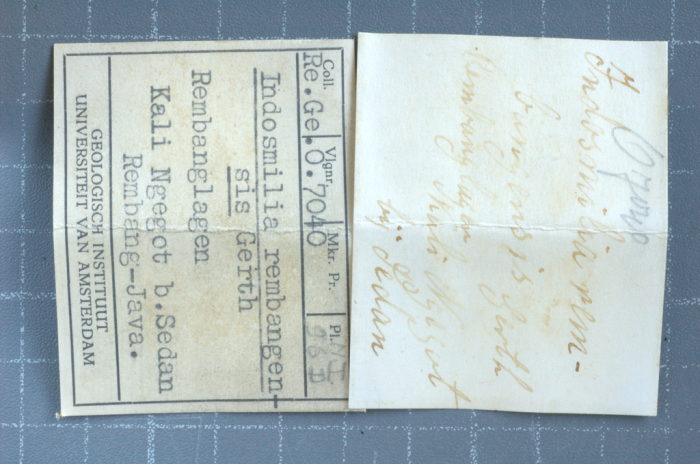 Coll. Vlgnr. Mkr. Pr. Pl.
Re.Ge. O.7040
Indosmilia rembangen-
sis Gerth
Rembanglagen
Kali Ngegot b.Sedan
Rembang-Java.
GEOLOGISCH INSTITUUT
UNIVERSITEIT VAN AMSTERDAM
O7040
Indosmilia rem-
bangensis Gerth
Rembanglagen
Kali Ngegot
bij Sedan